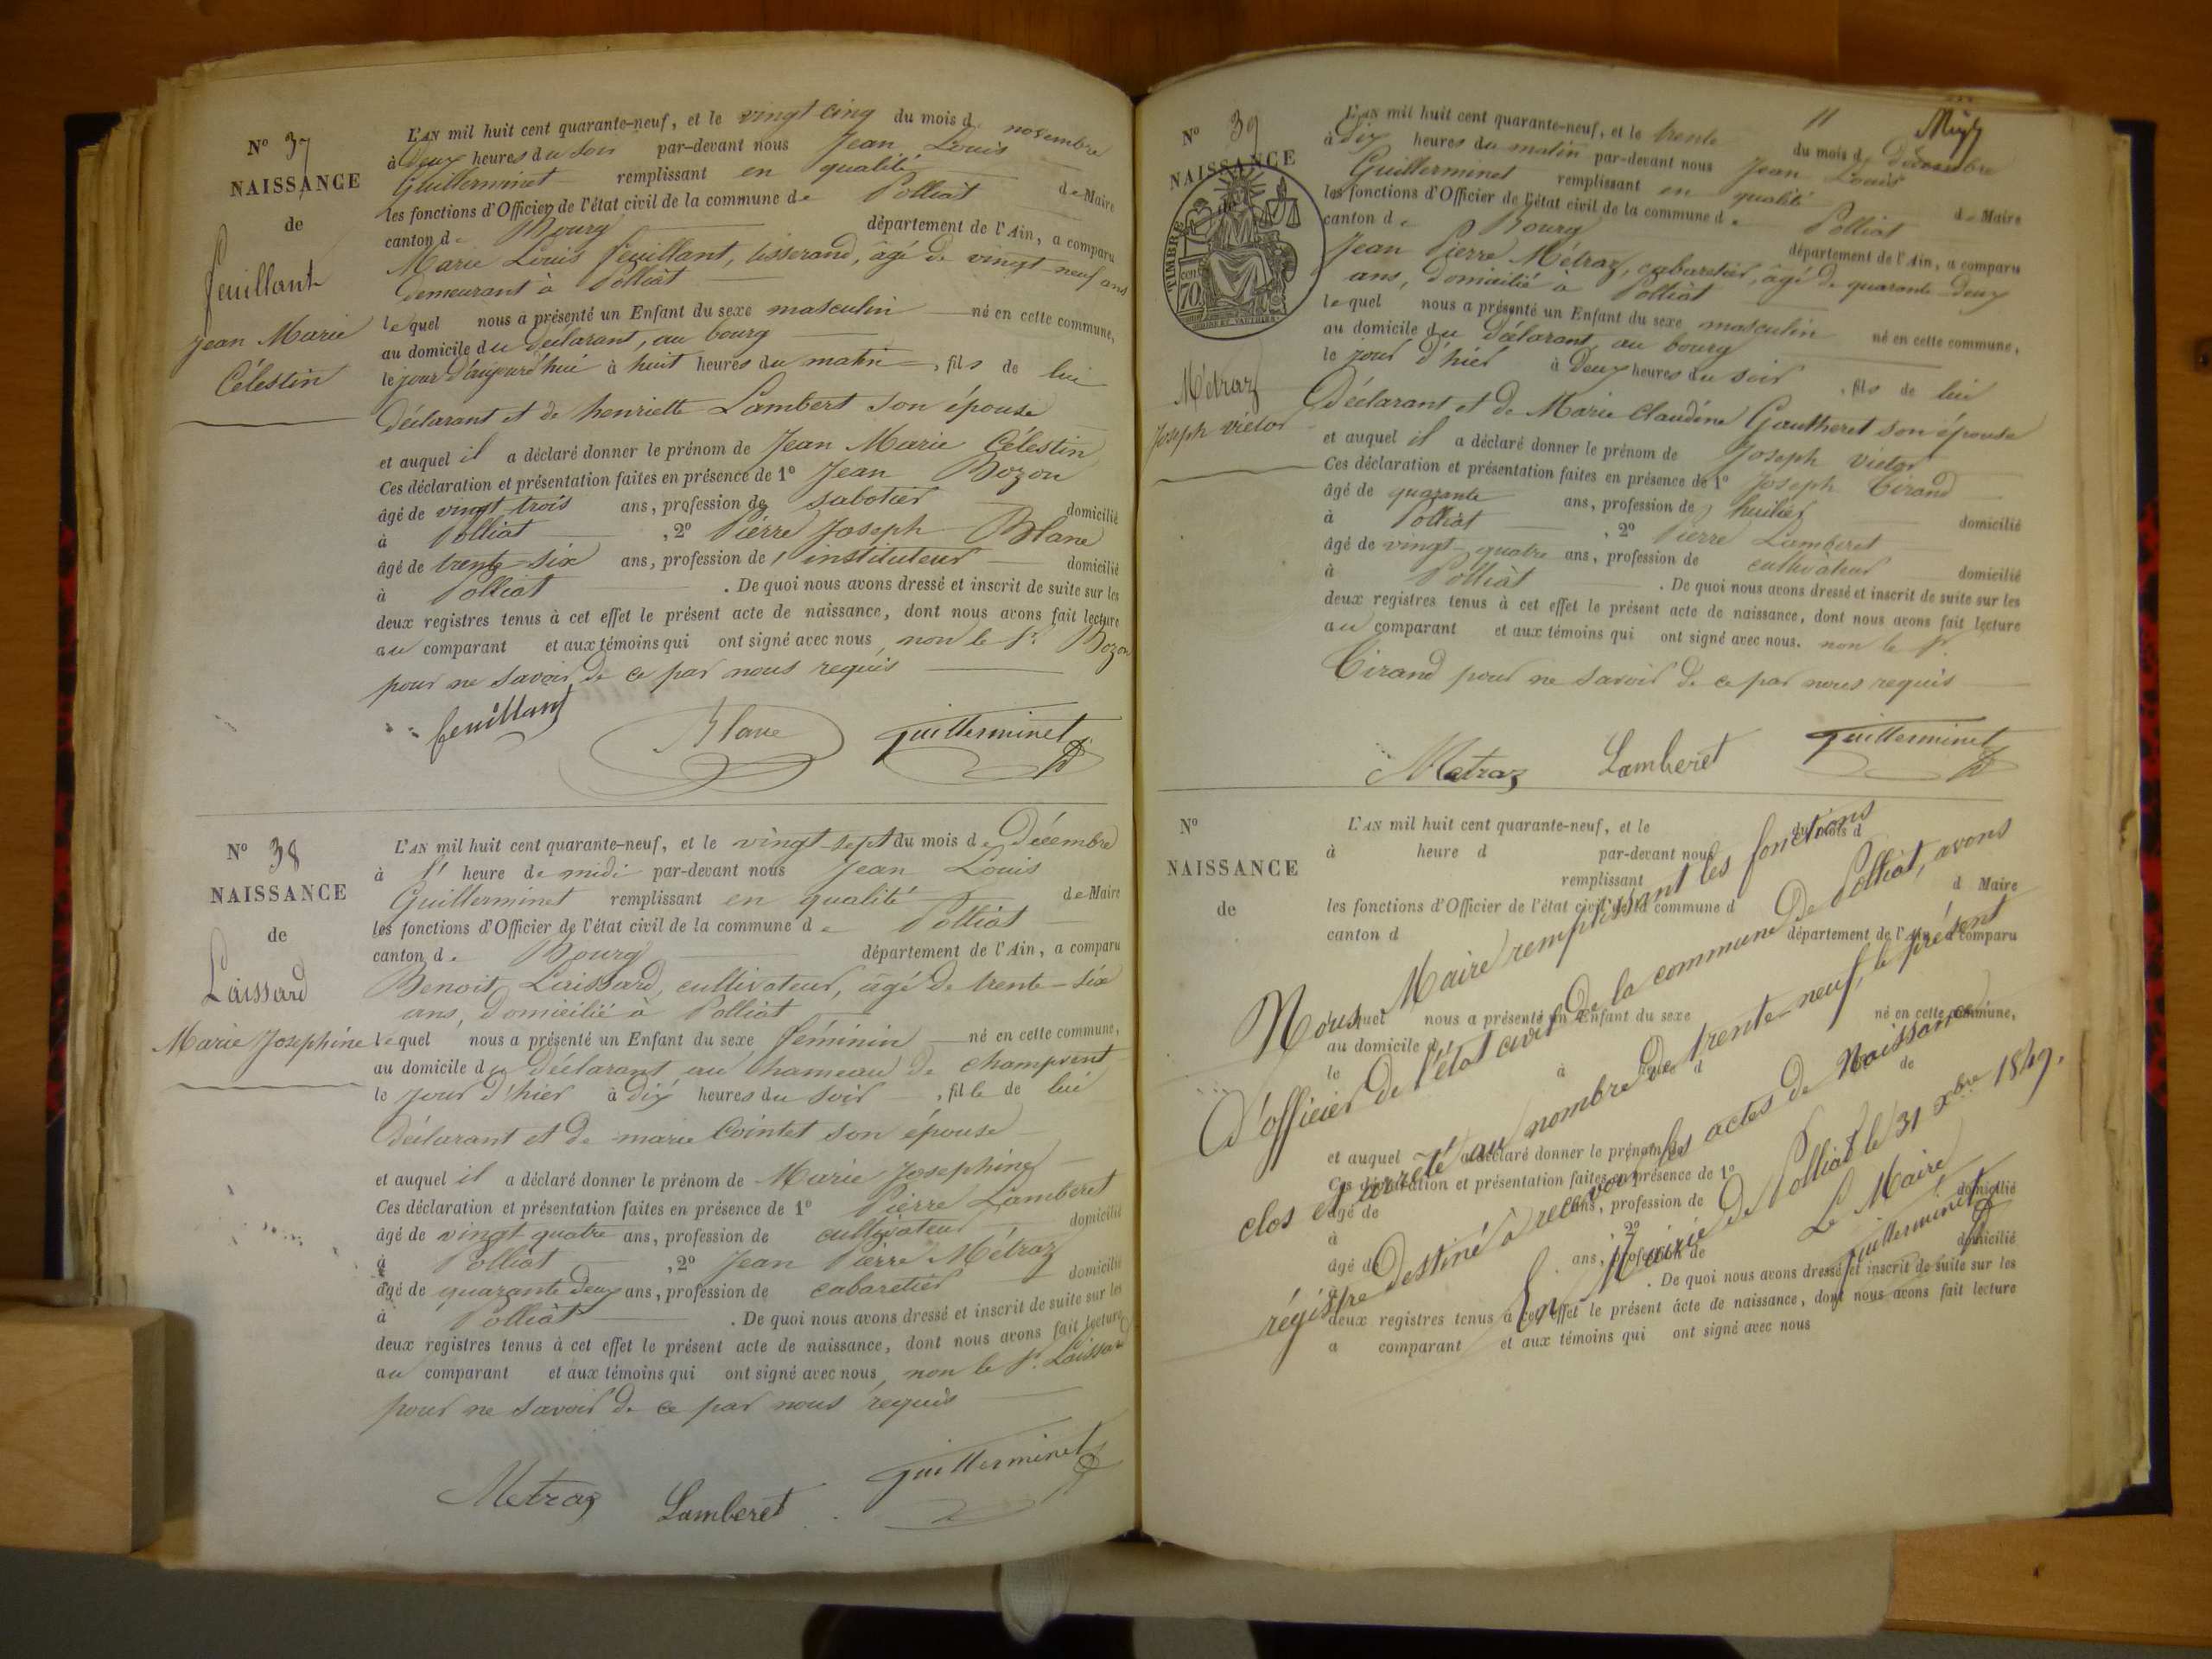 N° 37
NAISSANCE
de
feuillant
Jean Marie
Célestin
L'AN mil huit cent quarante-neuf, et le vingt cinq du mois de novembre
à Deux heures du soir par-devant nous Jean Louis
Guillerminet remplissant en qualité de Maire
les fonctions d'Officier de l'état civil de la commune de Polliat
canton de Bourg département de l'Ain, a comparu
Marie Louis feuillant, tisserand, âgé de vingt-neuf ans
demeurant à Polliat
lequel nous a présenté un Enfant du sexe masculin né en cette commune,
au domicile du déclarant, au bourg
le jour d'aujourd'hui à huit heures du matin, fils de lui
Déclarant et de henriette Lambert son épouse
et auquel il a déclaré donner le prénom de Jean Marie Célestin
Ces déclaration et présentation faites en présence de 1° Jean Bozon
âgé de vingt trois ans, profession de sabotier domicilié
à Polliat, 2° Pierre Joseph Blanc
âgé de trente-six ans, profession d'instituteur domicilié
à Polliat. De quoi nous avons dressé et inscrit de suite sur les
deux registres tenus à cet effet le présent acte de naissance, dont nous avons fait lecture
au comparant et aux témoins qui ont signé avec nous, non le Sr. Bozon
pour ne savoir de ce par nous requis
feuillant Blanc Guillerminet
N° 38
NAISSANCE
de
Laissard
Marie Josephine
L'AN mil huit cent quarante-neuf, et le vingt-sept du mois de Décembre
à l'heure de midi par-devant nous Jean Louis
Guillerminet remplissant en qualité de Maire
les fonctions d'Officier de l'état civil de la commune de Polliat
canton de Bourg département de l'Ain, a comparu
Benoit Laissard, cultivateur, âgé de trente-six
ans, domicilié à Polliat
lequel nous a présenté un Enfant du sexe féminin né en cette commune,
au domicile du déclarant au hameau de champvent
le jour d'hier à dix heures du soir, fille de lui
Déclarant et de marie Cointet son épouse
et auquel il a déclaré donner le prénom de Marie Josephine
Ces déclaration et présentation faites en présence de 1° Pierre Lamberet
âgé de vingt quatre ans, profession de cultivateur domicilié
à Polliat, 2° Jean Pierre Métraz
âgé de quarante deux ans, profession de cabaretier domicilié
à Polliat. De quoi nous avons dressé et inscrit de suite sur les
deux registres tenus à cet effet le présent acte de naissance, dont nous avons fait lecture
au comparant et aux témoins qui ont signé avec nous, non le Sr. Laissard
pour ne savoir de ce par nous requis
Metraz Lamberet Guillerminet
11
N° 39
NAISSANCE
TIMBRE
70
Métraz
Joseph victor
L'AN mil huit cent quarante-neuf, et le trente du mois de décembre
à dix heures du matin par-devant nous Jean Louis
Guillerminet remplissant en qualité de Maire
les fonctions d'Officier de l'état civil de la commune de Polliat
canton de Bourg département de l'Ain, a comparu
Jean Pierre Métraz, cabaretier, âgé de quarante-deux
ans, domicilié à Polliat
lequel nous a présenté un Enfant du sexe masculin né en cette commune,
au domicile du déclarant au bourg
le jour d'hier à Deux heures du soir, fils de lui
Déclarant et de Marie Claudine Gautheret son épouse
et auquel il a déclaré donner le prénom de Joseph victor
Ces déclaration et présentation faites en présence de 1° Joseph Tirand
âgé de quarante ans, profession de huilier domicilié
à Polliat, 2° Pierre Lamberet
âgé de vingt-quatre ans, profession de cultivateur domicilié
à Polliat. De quoi nous avons dressé et inscrit de suite sur les
deux registres tenus à cet effet le présent acte de naissance, dont nous avons fait lecture
au comparant et aux témoins qui ont signé avec nous. non le Sr.
Tirand pour ne savoir de ce par nous requis
Metraz Lamberet Guillerminet
N°
NAISSANCE
de
L'AN mil huit cent quarante-neuf, et le du mois d
à heure d par-devant nous
remplissant
d Maire
les fonctions d'Officier de l'état civil de la commune d
canton d département de l'Ain, a comparu
lequel nous a présenté un Enfant du sexe né en cette commune,
au domicile d
le à heure d de
et auquel a déclaré donner le prénom de
Ces déclaration et présentation faites en présence de 1°
âgé de ans, profession de domicilié
à 2°
âgé de ans, profession de domicilié
à . De quoi nous avons dressé et inscrit de suite sur les
deux registres tenus à cet effet le présent acte de naissance, dont nous avons fait lecture
a comparant et aux témoins qui ont signé avec nous
Nous Maire remplissant les fonctions
d'officier de l'état civil de la commune de Polliat, avons
clos et arreté au nombre de trente-neuf, le présent
régistre destiné à recevoir les actes de Naissance
En Mairie de Polliat le 31 Xbre 1849.
Le Maire
Guillerminet